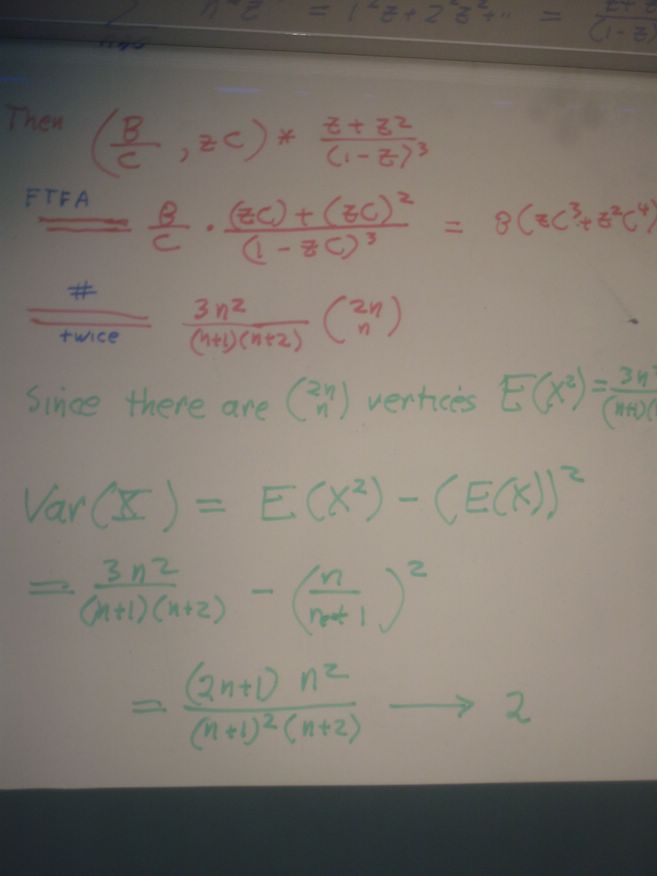 = 1²z + 2²z² + ·· =
Then (B/C , zC) * (z + z²)/(1 - z)³
FTFA
= B/C · ((zC) + (zC)²)/(1 - zC)³ = B(zC³ + z²C⁴)
#
= 3n²/((n+1)(n+2)) (2n n)
twice
Since there are (2n n) vertices E(X²) = 3n²/(n+1)(
Var(X) = E(X²) - (E(X))²
= 3n²/((n+1)(n+2)) - (n/(n+1))²
= ((2n+1) n²)/((n+1)²(n+2)) → 2